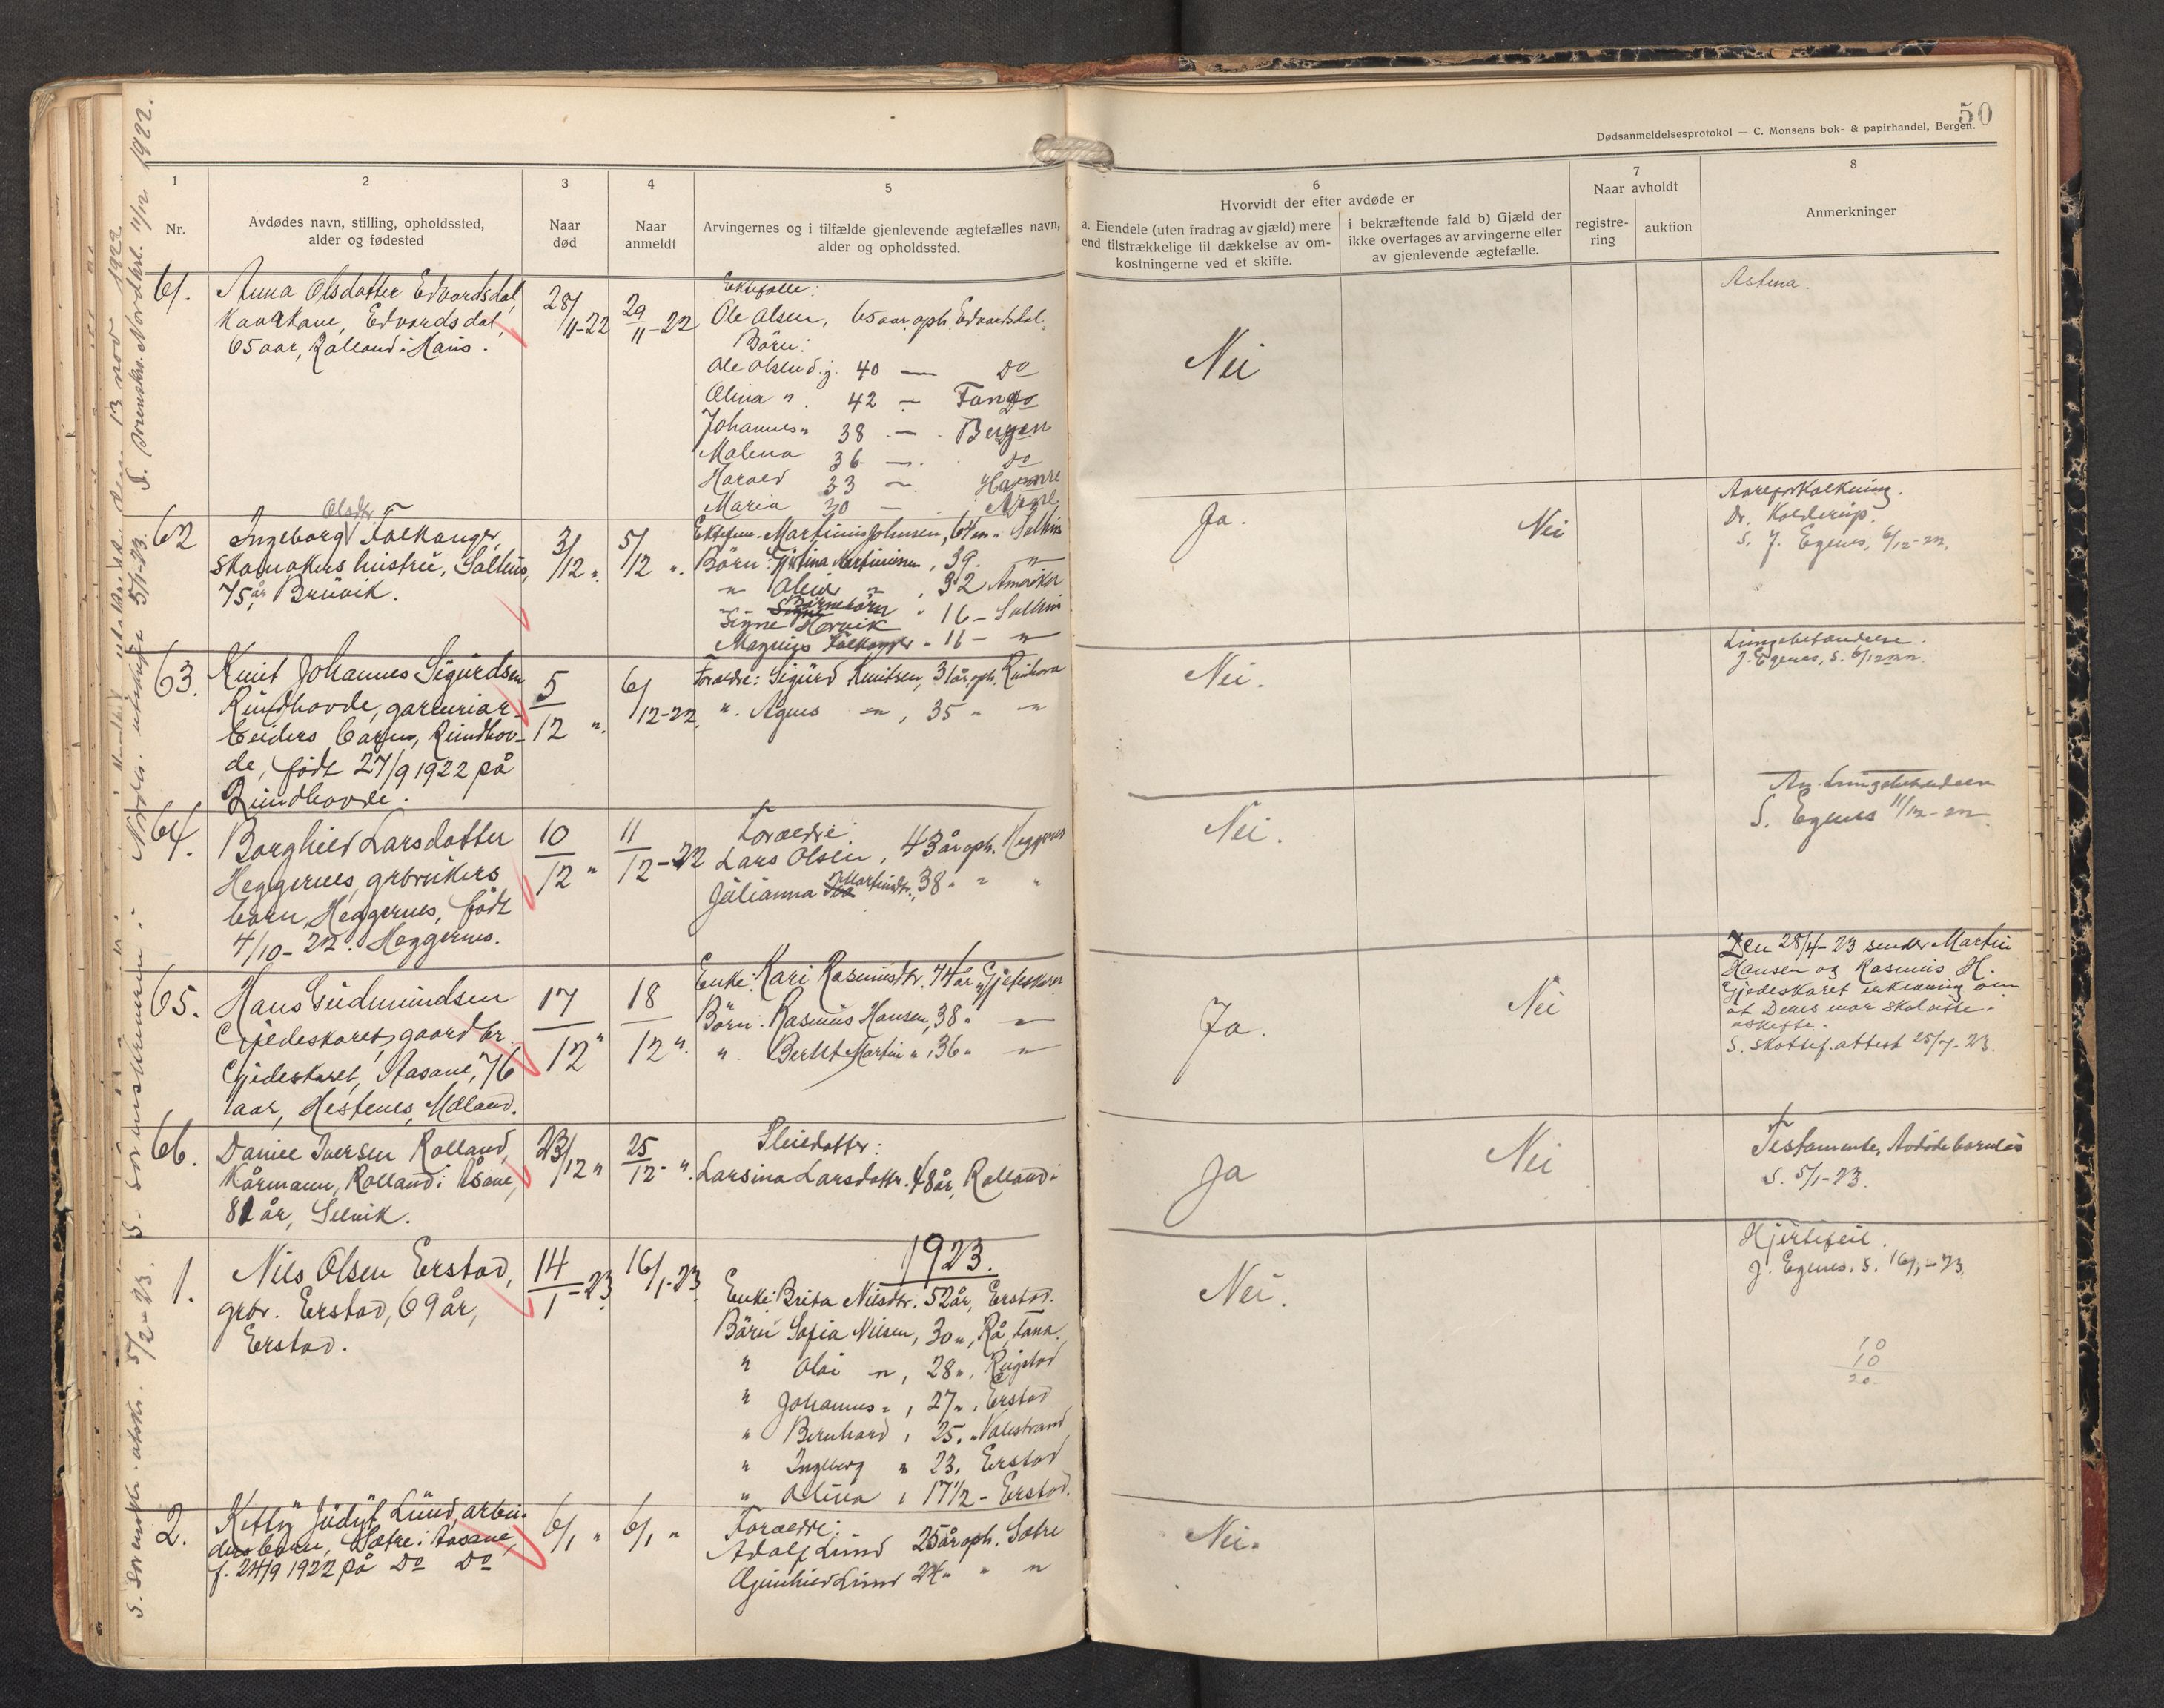 50
Dødsanmeldelsesprotokol — C. Monsens bok- & papirhandel, Bergen.
1
Nr.
2
Avdødes navn, stilling, opholdssted,
alder og fødested
3
Naar
død
4
Naar
anmeldt
5
Arvingernes og i tilfælde gjenlevende ægtefælles navn,
alder og opholdssted.
6
Hvorvidt der efter avdøde er
a. Eiendele (uten fradrag av gjæld) mere
end tilstrækkelige til dækkelse av om-
kostningerne ved et skifte.
i bekræftende fald b) Gjæld der
ikke overtages av arvingerne eller
av gjenlevende ægtefælle.
7
Naar avholdt
registre-
ring
auktion
8
Anmerkninger
61.
Anna Olsdatter Edvardsdal,
Kaarkone, Edvardsdal,
65 aar, Rolland i Haus.
28/11-22
29/11-22
Ektefælle:
Ole Olsen, 65 aar oph. Edvardsdal.
Börn:
Ole Olsen d.y. 40 — Do
Olina " 42 —
Johannes " 38 — Bergen
Malena 36 — Do
Harald 33 —
Maria 30 —
Nei
Astma.
62
Olsdtr.
Ingeborg Falkanger,
skomakers hustru, Salhus,
75 år, Bruvik.
3/12 "
5/12 "
Martinus Johnsen, 64 " Salhus
Börn: 39 "
" " 32 Amerika
Barnebörn
Signe Hervik " 16 — Salhus
Magnus Falkanger " 11 — "
Ja.
Nei
Aareforkalkning.
Dr. Kolderup.
S. J. Egenes, 6/12-22.
63.
Knut Johannes Sigurdsen
Rundhovde, garveriar-
beiders barn, Rundhov-
de, född 27/9 1922 på
Rundhovde.
5/12 "
6/12-22
Foraeldre: Sigurd Knutsen, 31 år oph.
" Agnes " , 35 " "
Nei.
Lungebetændelse.
J. Egenes, S. 6/12 22.
64.
Borghild Larsdatter
Heggernes, grbrukers
barn, Heggernes, född
4/10-22. Heggernes.
10/12 "
11/12-22
Foraeldre:
Lars Olsen, 43 år oph. Heggernes
Julianna Martinsdtr., 38 " " "
Nei.
An. Lungebetændelse
S. Egenes 11/12-22
65.
Hans Gudmundsen
Gjedeskaret, gaardbr.
Gjedeskaret, Aasane, 76
aar, Hestenes, Mæland.
17/12 "
18/12 "
Enke: Kari Rasmusdtr. 74 år, Gjedeskaret
Börn: Rasmus Hansen, 38 " "
" Berket Martin " , 36 " "
Ja.
Nei
Den 28/4-23 sender Martin
Hansen og Rasmus H.
Gjedeskaret erklæring om
at Deres mor skal sitte i
uskifte.
S. skattef. attest 25/7-23.
66.
Daniel Iversen Rolland,
Kårmann, Rolland i Åsane,
81 år, Selvik.
23/12 "
25/12 - "
Pleiedatter:
Larsina Larsdattr. 48 år, Rolland i
Ja
Nei
Testamente, Avdöde barnlös
S. 5/1-23.
1923.
1.
Nils Olsen Erstad,
grbr. Erstad, 69 år,
Erstad.
14/1-23
16/1-23
Enke: Brita Nilsdtr. 52 år, Erstad.
Börn: Sofia Nilsen, 30 ", Rå, Fana.
" Olai " , 28 ",
" Johannes " , 27 ", Erstad
" Bernhard , 25 . " Valestrand
" Ingeborg " 23, Erstad
" Olina , 17 1/2 - Erstad.
Nei.
Hjertefeil.
J. Egenes. S. 16/1-23.
10
10
20
2.
Kitty Judit Lund, arbei-
ders barn, Sætre i Aasane,
f. 24/9 1922 på Do Do
6/1 "
6/1 "
Foraeldre:
Adolf Lund 25 år oph. Sætre
Lund 24 " " "
Nei.